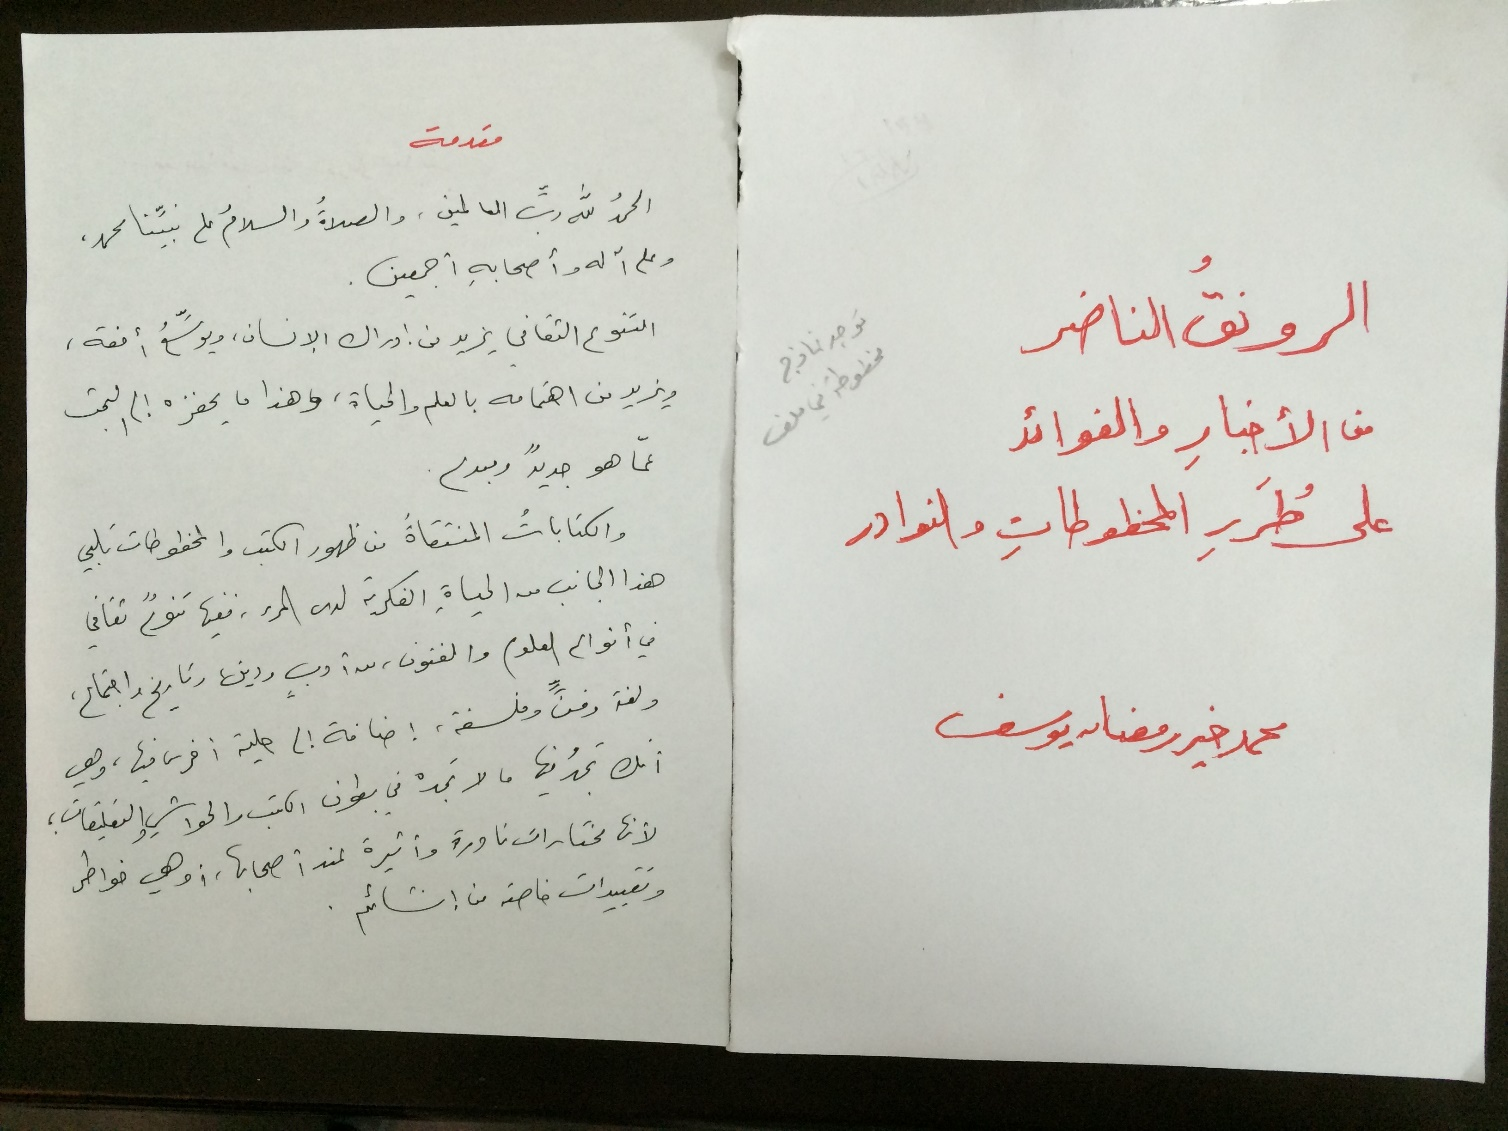 الرونقُ الناضر
من الأخبارِ والفوائد
على طُرَرِ المخطوطاتِ والنوادر
محمد خير رمضان يوسف
توجد نماذج
مخطوطة في ملف
مقدمة
الحمدُ للهِ ربِّ العالمين، والصلاةُ والسلامُ على نبيِّنا محمد،
وعلى آله وأصحابهِ أجمعين.
التنوع الثقافي يزيد من إدراك الإنسان، ويوسِّعُ أفقه،
ويزيد من اهتمامه بالعلم والحياة، وهذا ما يحفزه إلى البحث
عمّا هو جديدٌ وبديع.
والكتاباتُ المنتقاةُ من ظهور الكتب والمخطوطات تلبي
هذا الجانب من الحياةِ الفكرية لدى المرء، ففيها تنوعٌ ثقافي
في أنواع العلوم والفنون، من أدبٍ ودين، وتاريخ واجتماع،
ولغة وفنٍّ وفلسفة، إضافة إلى حلية أخرى فيها، وهي
أنك تجدُ فيها ما لا تجدهُ في بطون الكتب والحواشي والتعليقات؛
لأنها مختارات نادرة وأثيرة عند أصحابها، أو هي خواطر
وتقييدات خاصة من إنشائهم.